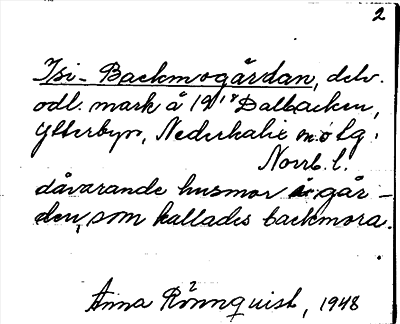 2
Isi-Backmogårdan, delv.
odl. mark å 19¹⁸ Dalbacken,
Ytterbyn, Nederkalix sn.
Norrb. l.
dåvarande husmor i går-
den, som kallades backmora.
Anna Rönnquist, 1948